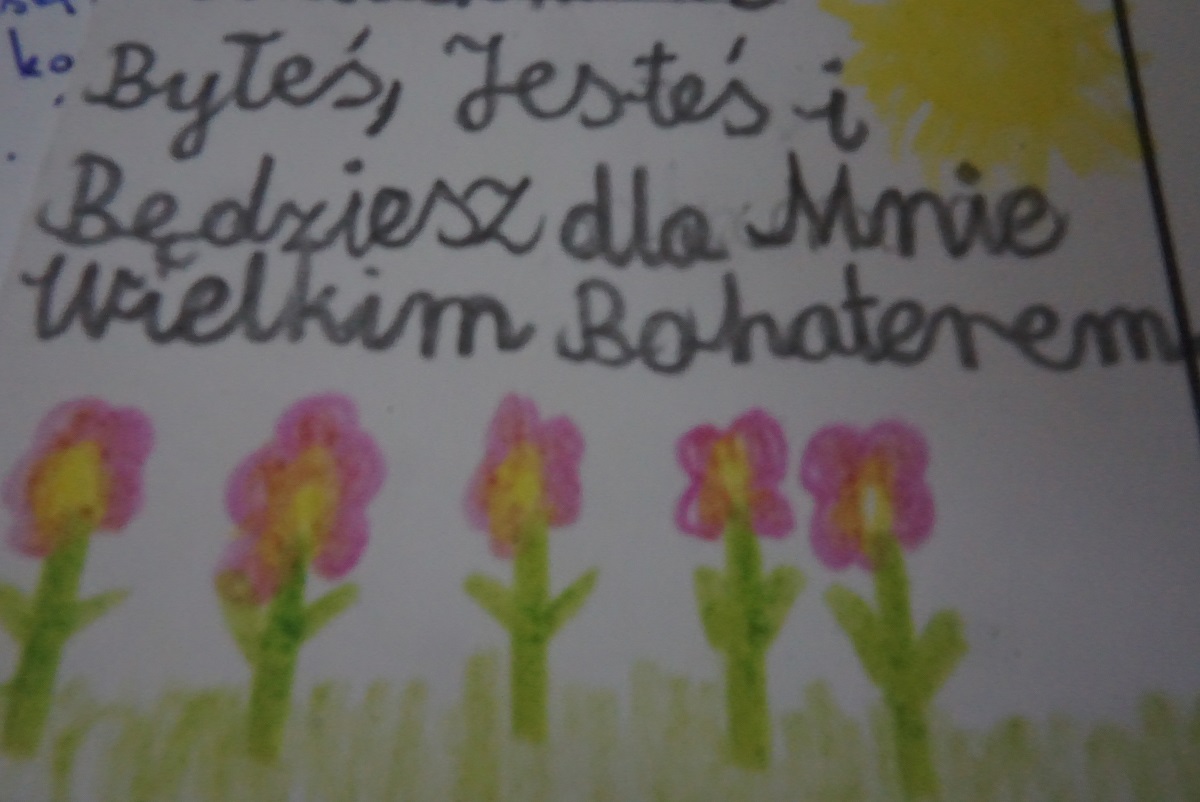 ko.
Byłeś, Jesteś i
Będziesz dla Mnie
Wielkim Bohaterem